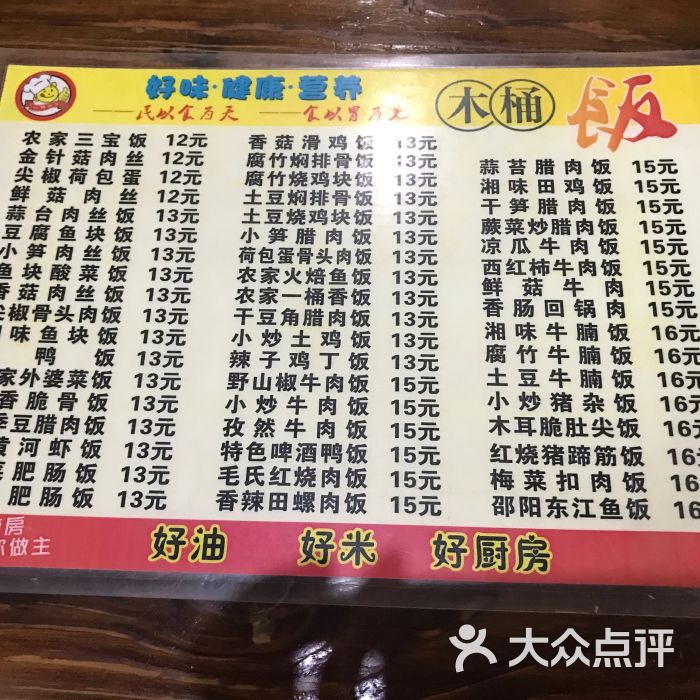 好味·健康·营养
——民以食为天 ——食以胃为先
木桶饭
农家三宝饭 12元
金针菇肉丝 12元
尖椒荷包蛋 12元
鲜菇肉丝 12元
蒜台肉丝饭 13元
豆腐鱼块饭 13元
小笋肉丝饭 13元
鱼块酸菜饭 13元
香菇肉丝饭 13元
尖椒骨头肉饭 13元
味鱼块饭 13元
鸭饭 13元
家外婆菜饭 13元
香脆骨饭 13元
季豆腊肉饭 13元
黄河虾饭 13元
肥肠饭 13元
肥肠饭 13元
香菇滑鸡饭 13元
腐竹焖排骨饭 13元
腐竹烧鸡块饭 13元
土豆焖排骨饭 13元
土豆烧鸡块饭 13元
小笋腊肉饭 13元
荷包蛋骨头肉饭 13元
农家火焙鱼饭 13元
农家一桶香饭 13元
干豆角腊肉饭 13元
小炒土鸡饭 13元
辣子鸡丁饭 13元
野山椒牛肉饭 15元
小炒牛肉饭 15元
孜然牛肉饭 15元
特色啤酒鸭饭 15元
毛氏红烧肉饭 15元
香辣田螺肉饭 15元
蒜苔腊肉饭 15元
湘味田鸡饭 15元
干笋腊肉饭 15元
蕨菜炒腊肉饭 15元
凉瓜牛肉饭 15元
西红柿牛肉饭 15元
鲜菇牛肉 15元
香肠回锅肉 15元
湘味牛腩饭 16元
腐竹牛腩饭 16元
土豆牛腩饭 16元
小炒猪杂饭 16元
木耳脆肚尖饭 16元
红烧猪蹄筋饭 16元
梅菜扣肉饭 16元
邵阳东江鱼饭 16
房
你做主
好油 好米 好厨房
大众点评